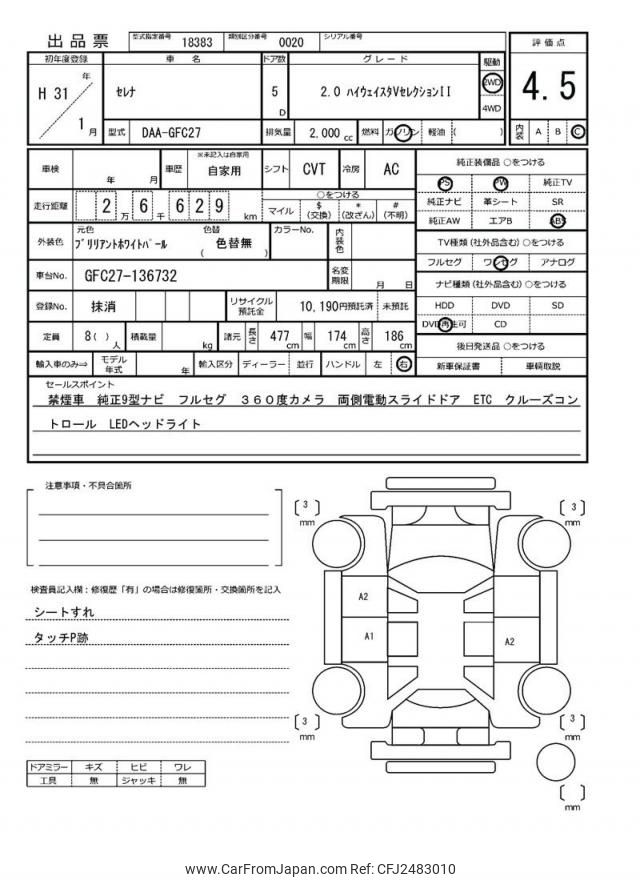 出品票
型式指定番号 18383 類別区分番号 0020 シリアル番号
初年度登録 車名 ドア数 グレード 駆動 評価点
H 31 年 セレナ 5 D 2.0 ハイウェイスタVセレクションII 2WD 4WD 4.5
1 月 型式 DAA-GFC27 排気量 2,000 cc 燃料 ガソリン 軽油 ( ) 内装 A B C
車検 年 月 車歴 ※未記入は自家用 自家用 シフト CVT 冷房 AC
走行距離 2 万 6 千 6 2 9 km ○をつける マイル $ (交換) * (改ざん) # (不明)
外装色 元色 ブリリアントホワイトパール 色替 ( 色替無 ) カラーNo. 内装色
車台No. GFC27-136732 名変期限 月 日
登録No. 抹消 リサイクル預託金 10,190円預託済 未預託
定員 8( ) 人 積載量 kg 諸元 長さ 477 cm 幅 174 cm 高さ 186 cm
輸入車のみ⇒ モデル年式 年 輸入区分 ディーラー 並行 ハンドル 左 右
純正装備品 ○をつける
PS PW 純正TV
純正ナビ 革シート SR
純正AW エアB ABS
TV種類(社外品含む)○をつける
フルセグ ワンセグ アナログ
ナビ種類(社外品含む)○をつける
HDD DVD SD
DVD再生可 CD
後日発送品 ○をつける
新車保証書 車輌取説
セールスポイント
禁煙車 純正9型ナビ フルセグ 360度カメラ 両側電動スライドドア ETC クルーズコン
トロール LEDヘッドライト
注意事項・不具合箇所
検査員記入欄:修復歴「有」の場合は修復箇所・交換箇所を記入
シートすれ
タッチP跡
ドアミラー キズ ヒビ ワレ
工具 無 ジャッキ 無
[ 3 ] mm [ 3 ] mm
A2
A1 A2
[ 3 ] mm [ 3 ] mm
[ ] mm
www.CarFromJapan.com Ref: CFJ2483010